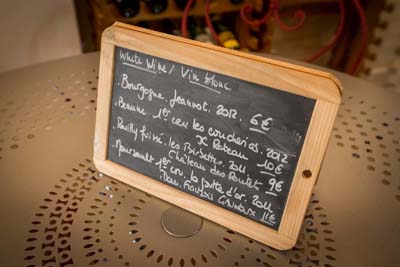 White Wine / Vin blanc
Bourgogne. Jeannot. 2012. 6€
Beaune 1er cru les coucherias. 2012
X Rateau 10€
Pouilly fuissé. les Birbettes. 2011
Château des Rontet. 9€
Meursault 1er cru. la goutte d'or. 2011
Dom. François Gaunoux 11€